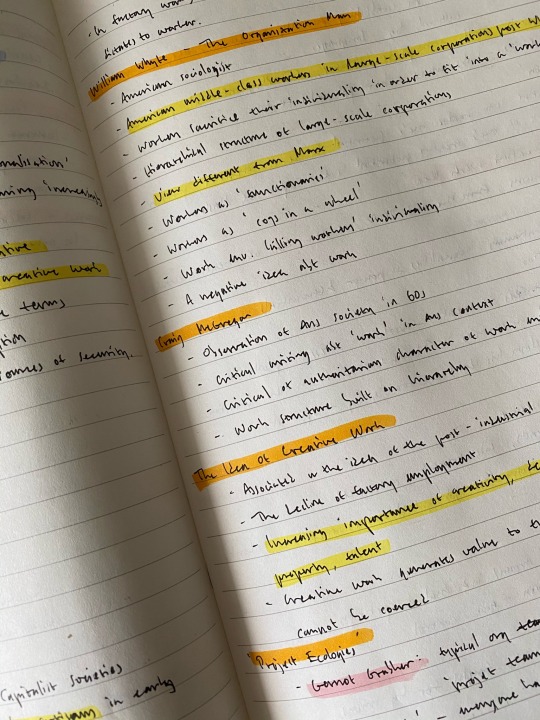 malisation'
ming 'increasingly
ative
creative work
e terms
ption
sources of security.
Capitalist societies
in early
in factory wor
dictates to worker.
William Whyte – The Organisation Man
- American sociologist
- American middle-class workers in large-scale corporations post W
- Workers sacrifice their 'individuality' in order to fit into a 'work
- Hierarchical structure of large-scale corporations
- View different from Marx
- Workers as 'functionaries'
- Workers as 'cogs in a wheel'
- Work env. killing workers' individuality
- A negative idea abt work
Craig McGregor
- Observation of Aus society in 60s
- critical writing abt 'work' in Aus context
- Critical of authoritarian character of work in
- Work structure built on hierarchy
The Idea of Creative Work
- Associated w the idea of the post-industrial
- The decline of factory employment
- Increasing importance of creativity,
property, talent
- Creative work generates value to
cannot be coerced
'Project Ecologies'
- Gernot Grabher: typical org
'project team
- everyone ha